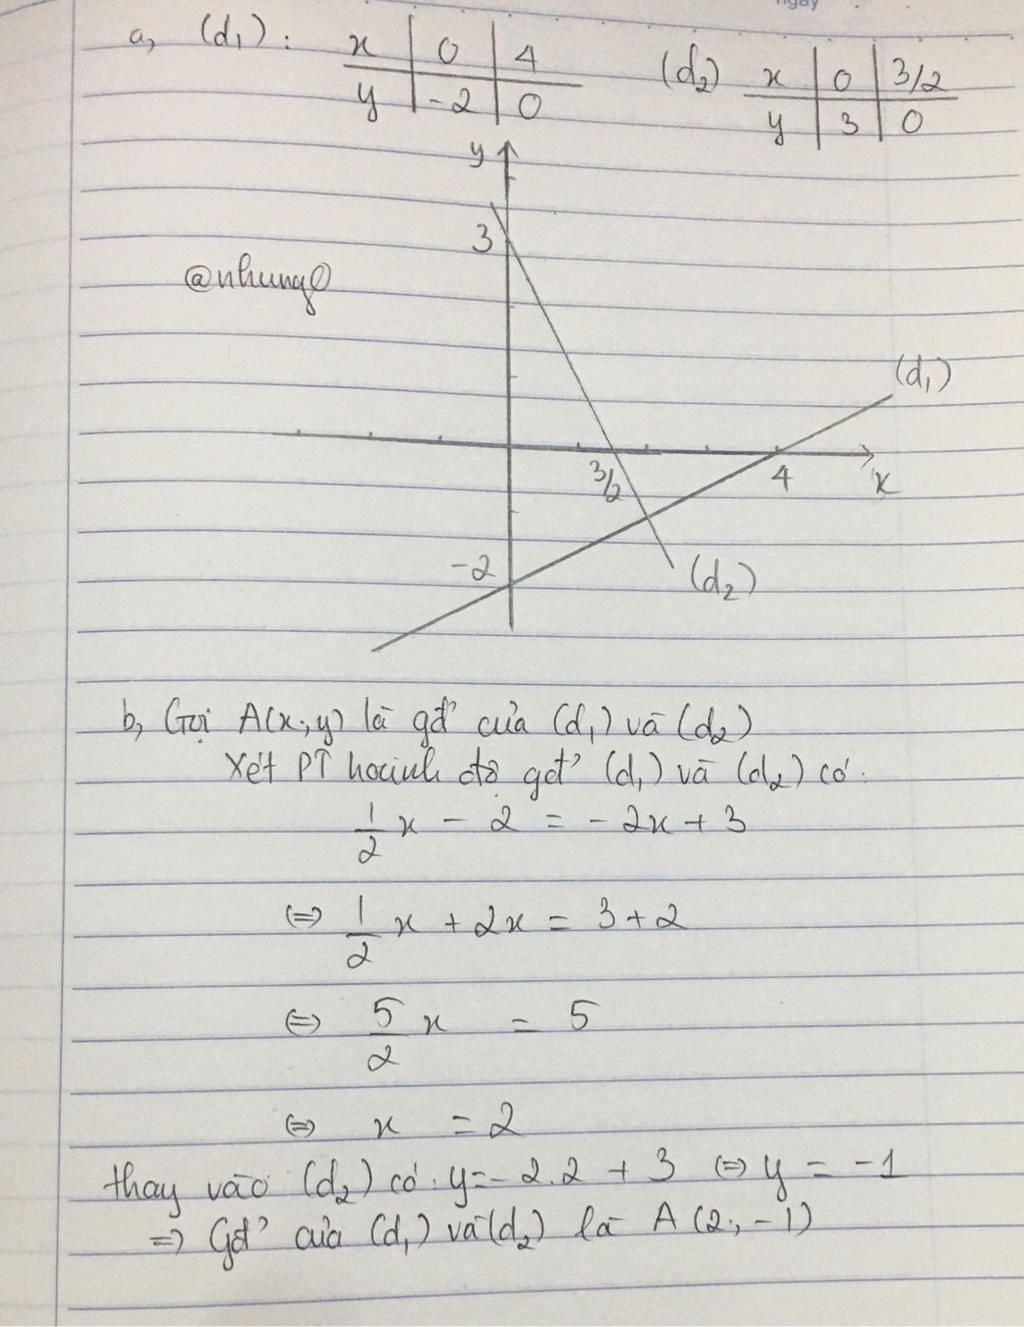 ngày
a, (d₁): x | 0 | 4
y | -2 | 0
(d₂) x | 0 | 3/2
y | 3 | 0
y
3
@nhung0
(d₁)
3/2
4
x
-2
(d₂)
b, Gọi A(x;y) là gđ' của (d₁) và (d₂)
Xét PT hoành độ gđ' (d₁) và (d₂) có:
1/2 x - 2 = - 2x + 3
⇔ 1/2 x + 2x = 3 + 2
⇔ 5/2 x = 5
⇔ x = 2
thay vào (d₂) có: y = - 2.2 + 3 ⇔ y = -1
⇒ Gđ' của (d₁) và (d₂) là A (2; -1)